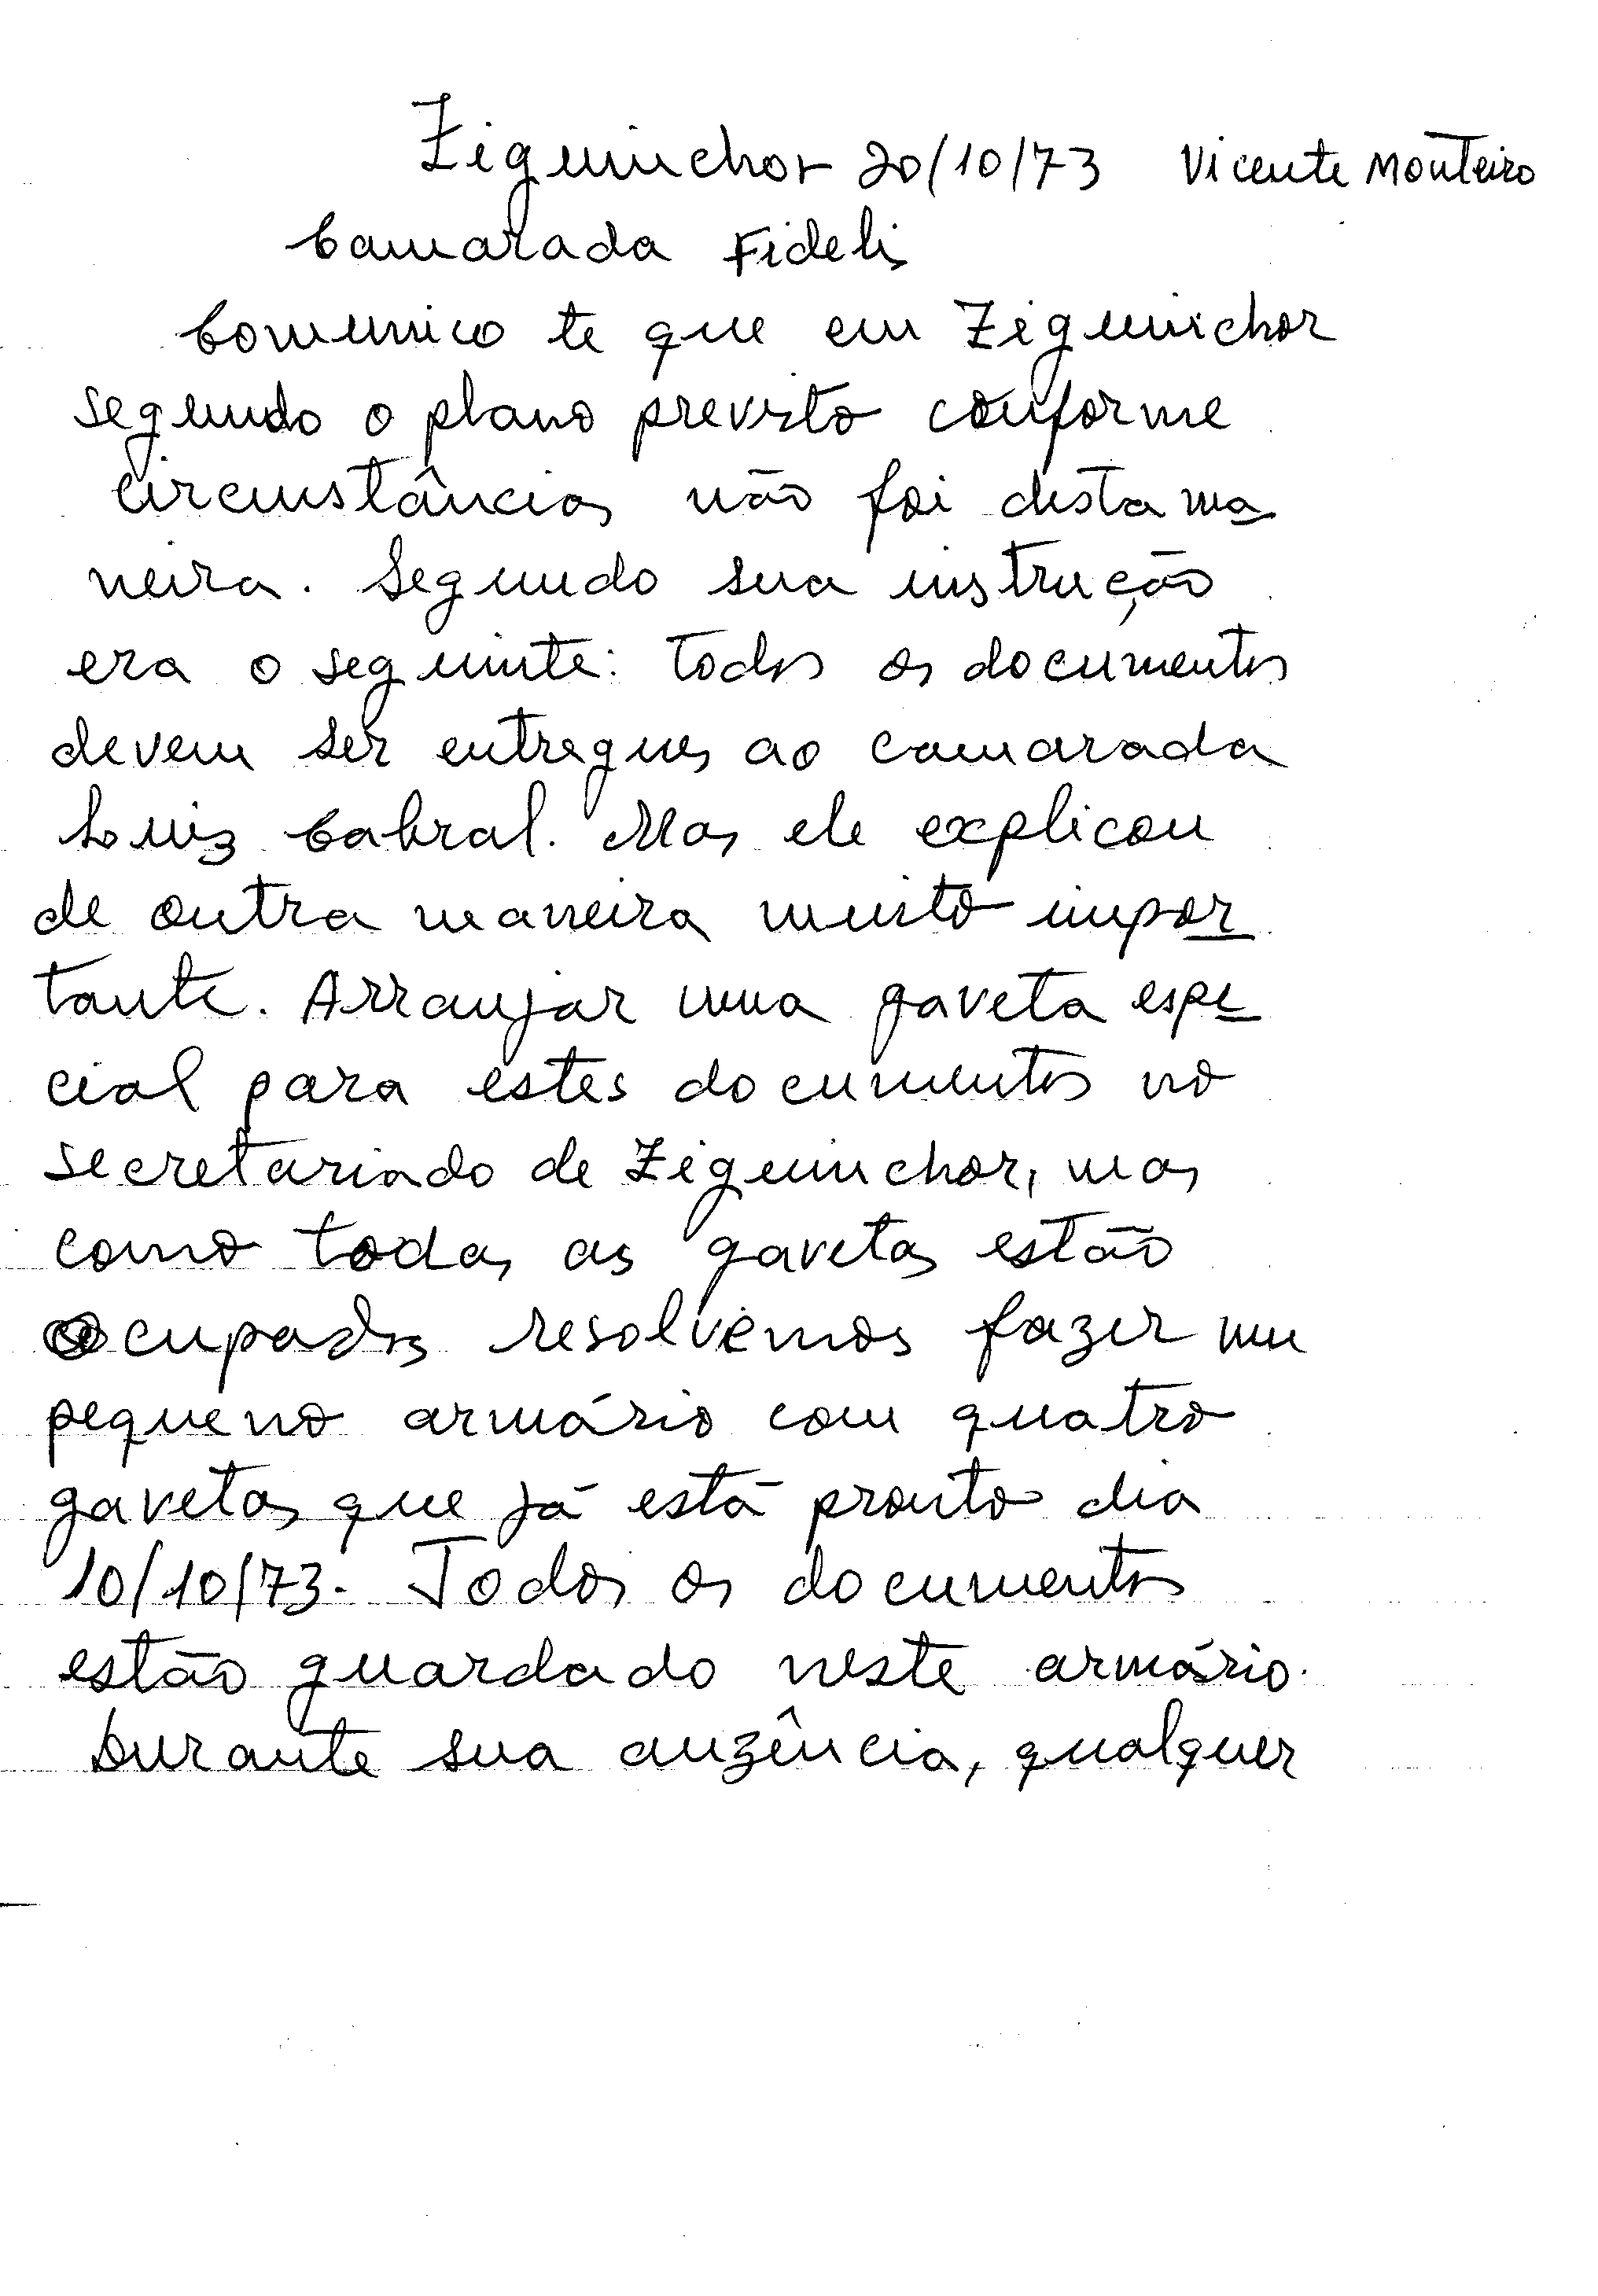 Ziguinchor 20/10/73 Vicente Monteiro
Camarada Fidelis
Comunico te que em Ziguinchor
segundo o plano previsto conforme
circunstâncias não foi desta ma
neira. Segundo sua instrução
era o seguinte: Todos os documentos
devem ser entregues ao camarada
Luiz Cabral. Mas ele explicou
de outra maneira muito impor
tante. Arranjar uma gaveta espe
cial para estes documentos no
secretariado de Ziguinchor, mas
como todas as gavetas estão
ocupados resolvemos fazer um
pequeno armário com quatro
gavetas que já está pronto dia
10/10/73. Todos os documentos
estão guardado neste armário.
Durante sua auzência, qualquer